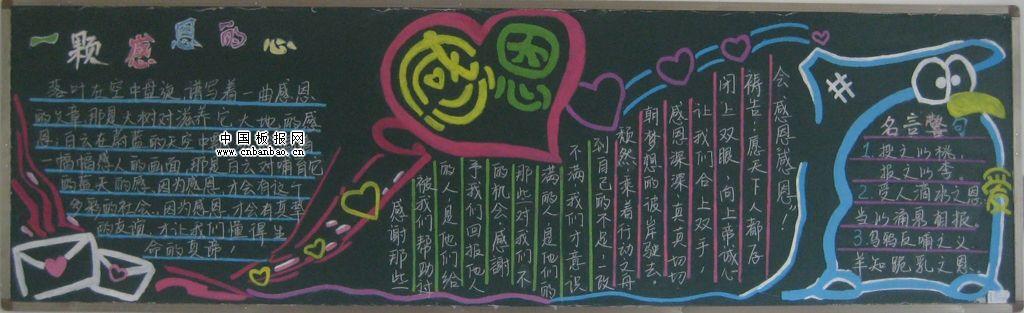 一颗感恩的心
落叶在空中盘旋,谱写着一曲感恩
的文章,那是大树对滋养它大地的感
恩;白云在蔚蓝的天空中
一幅幅感人的画面,那是白云对哺育它
的蓝天的感。因为感恩,才会有这个
多彩的社会,因为感恩,才会有真挚
的友谊,才让我们懂得生
命的真谛!
中国板报网
www.cnbanbao.cn
感恩
会感恩感恩!!
祷告:愿天下人都存
闭上双眼,向上帝诚心
让我们合上双手,
感恩深深,真真切切
朝梦想的彼岸驶去。
颓然,乘着行动之舟
到自己的不足,改
不满,我们才意识
满的人,是他们的
那些对我们不
的机会,感谢
予我们回报他人
的人,是他们给
被我们帮助过
感谢那些
名言警句
1.投之以桃,
报之以李。
2.受人滴水之恩
当以涌泉相报。
3.乌鸦反哺之义
羊知跪乳之恩。
爱